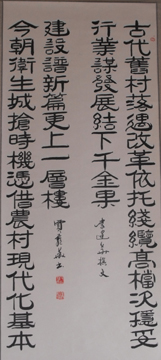 古代舊村落遇改革依托綫纜高檔次穩受
行業謀發展結下千金果
撰文
今朝衛生城搶時機憑借農村現代化基本
建設譜新篇更上一層樓